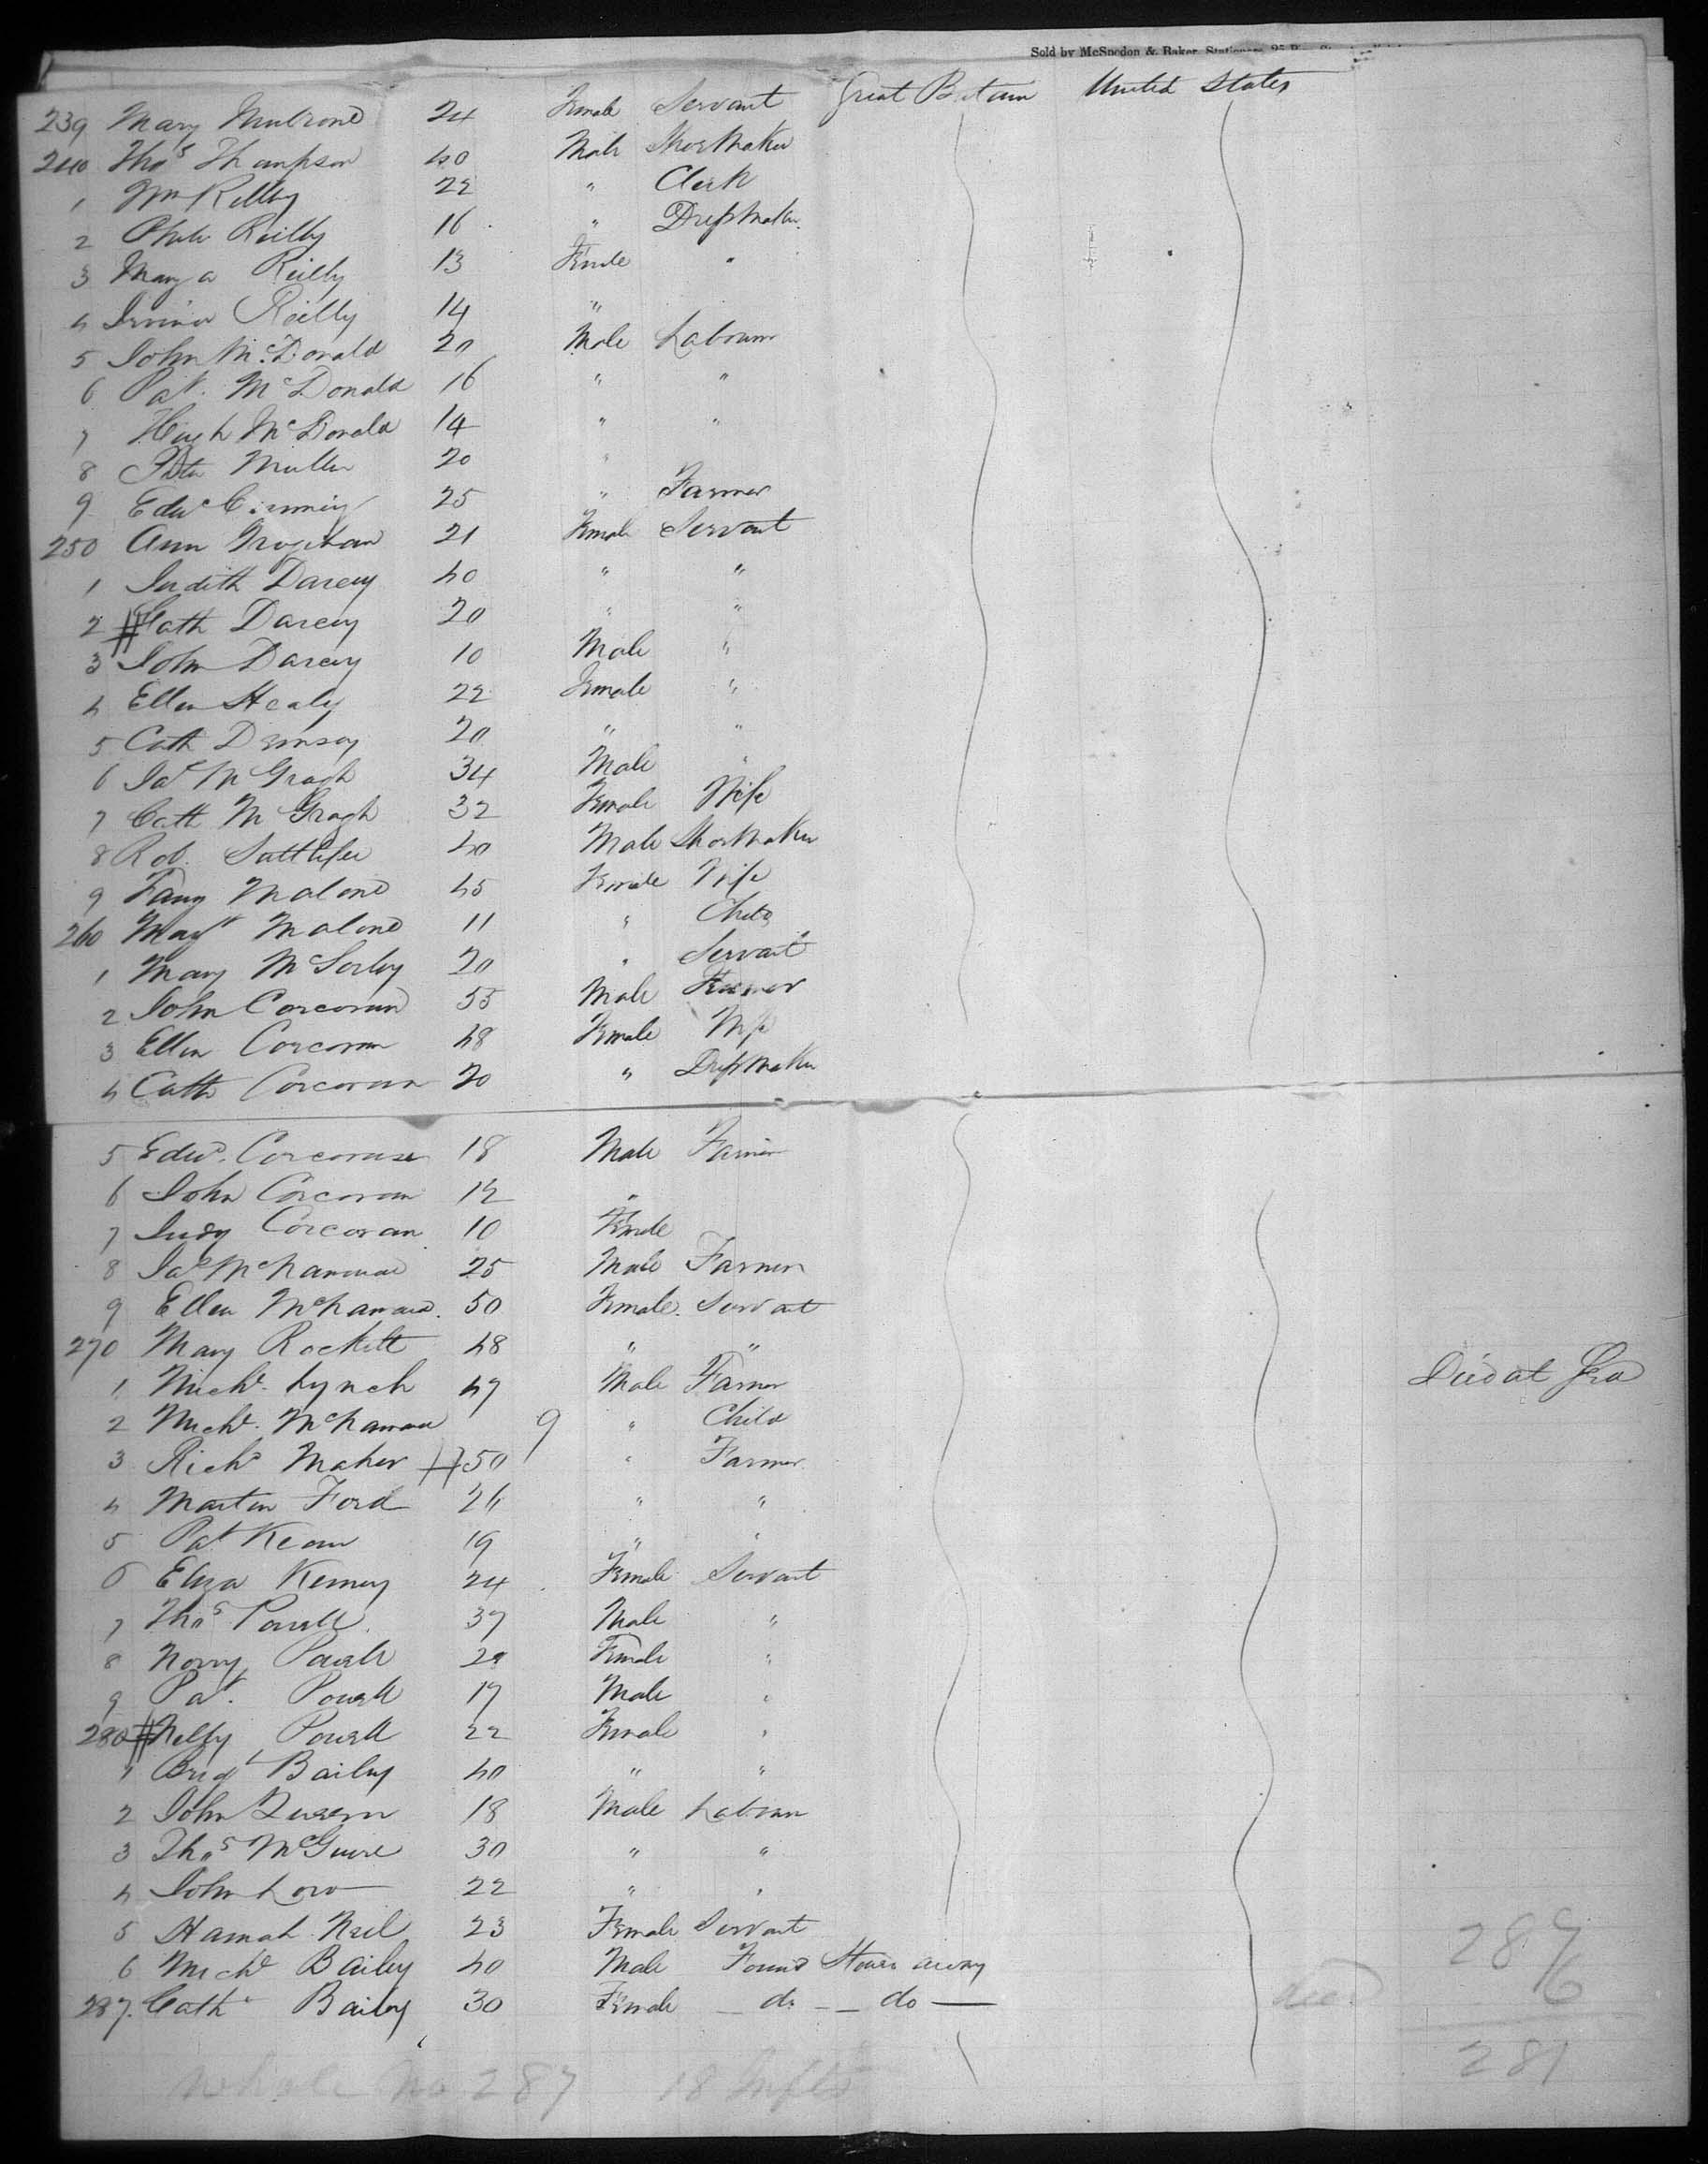 Sold by McSpedon & Baker, Stationers, 25 Pine
239 Mary Mulrone 24 Female Servant Great Britain United States
240 Thos Thompson 40 Male Shoe Maker
1 Wm Reilly 22 " Clerk
2 Reilly 16 " Dress Maker
3 Mary a Reilly 13 Female "
4 Reilly 14 "
5 John McDonald 20 Male Labourer
6 Pat. McDonald 16 " "
7 Hugh McDonald 14 " "
8 Peter Muller 20 "
9 Edwd 25 " Farmer
250 Ann Groghan 21 Female Servant
1 Judith Darcey 40 " "
2 # Cath Darcey 20 " "
3 John Darcey 10 Male "
4 Ellen Healy 22 Female "
5 Cath Demsey 20 " "
6 Jas McGragh 34 Male "
7 Cath McGragh 32 Female Wife
8 Rob. Suttlifee 40 Male Shoe Maker
9 Fany Malone 45 Female Wife
260 Magt Malone 11 " Child
1 Mary McSorley 20 " Servant
2 John Corcoran 55 Male Farmer
3 Ellen Corcoran 48 Female Wife
4 Cath Corcoran 20 " Dress Maker
5 Edwd. Corcoran 18 Male Farmer
6 John Corcoran 12 "
7 Judy Corcoran 10 Female
8 Jas McNamara 25 Male Farmer
9 Ellen McNamara 50 Female Servant
270 Mary Rockett 48 " "
1 Michl. Lynch 47 Male Farmer Died at Sea
2 Michl. McNamara 9 " Child
3 Richd Maher # 50 " Farmer
4 Martin Ford 26 " "
5 Pat Kean 19 " "
6 Eliza Kenney 24 Female Servant
7 Thos Powell 37 Male "
8 Norry Powell 29 Female "
9 Pat. Powell 17 Male "
280 # Nelly Powell 22 Female "
1 Brigt Bailey 40 " "
2 John 18 Male Labourer
3 Thos McGuire 30 " "
4 John Low 22 " "
5 Hannah Neil 23 Female Servant
6 Michl Bailey 40 Male Found Stow away
287. Cath Bailey 30 Female — do — — do —
died
287
6
281
Whole No 287 18 Infts